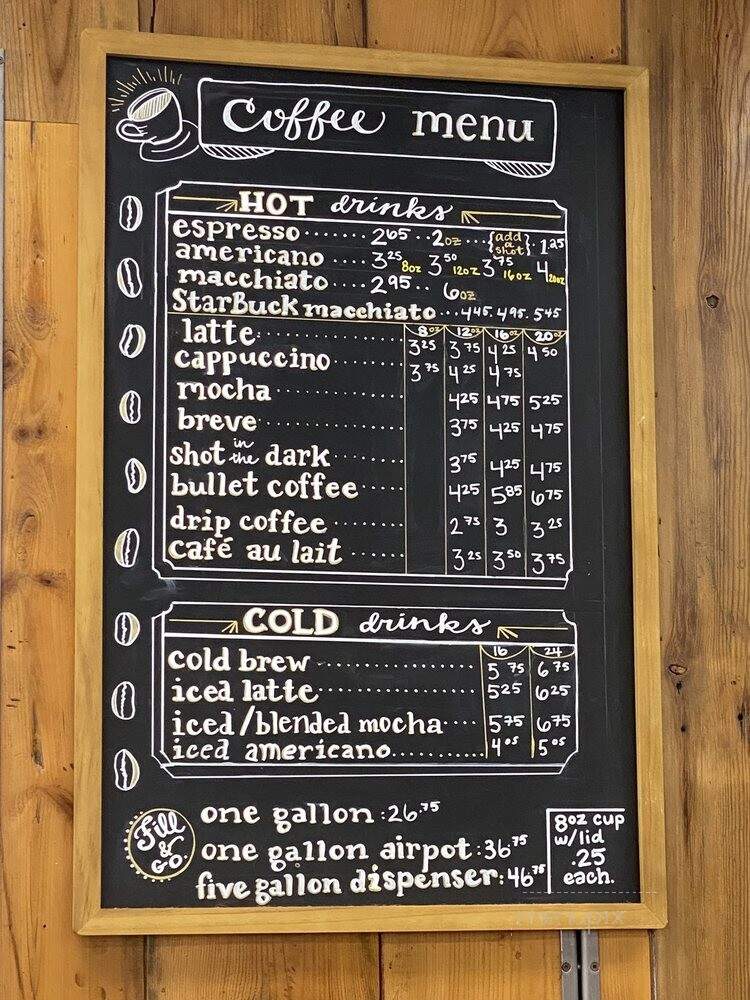 Coffee menu
HOT drinks
espresso ....... 2.65 .. 2oz .... {add a shot}. 1.25
americano .... 3.25 8oz 3.50 12oz 3.75 16oz 4 20oz
macchiato .... 2.95 .. 6oz
StarBuck macchiato ... 4.45. 4.95. 5.45
8oz 12oz 16oz 20oz
latte 3.25 3.75 4.25 4.50
cappuccino 3.75 4.25 4.75
mocha 4.25 4.75 5.25
breve 3.75 4.25 4.75
shot in the dark 3.75 4.25 4.75
bullet coffee 4.25 5.85 6.75
drip coffee 2.75 3 3.25
café au lait 3.25 3.50 3.75
COLD drinks
16 24
cold brew 5.75 6.75
iced latte 5.25 6.25
iced/blended mocha 5.75 6.75
iced americano 4.05 5.05
Fill & GO.
one gallon: 26.75
one gallon airpot: 36.75
five gallon dispenser: 46.75
8oz cup
w/lid
.25
each.